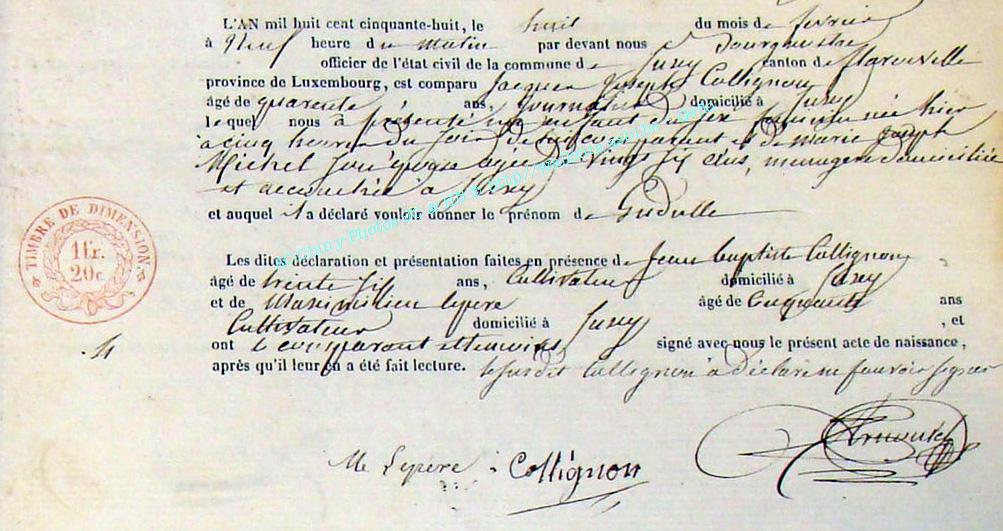 L'AN mil huit cent cinquante-huit, le huit du mois de fevrier
à Neuf heure du matin par devant nous Bourgmestre
officier de l'état civil de la commune de Juzy canton de
province de Luxembourg, est comparu Jacques Joseph Collignon
âgé de quarente ans, Journalier domicilié à Juzy
lequel nous à présenté un enfant du sexe feminin née hier
à cinq heures du soir de lui comparant et de marie joseph
Michel son épouse agée de vingt six ans, menagere domiciliée
et accouchée à Juzy
et auquel il a déclaré vouloir donner le prénom de Gudulle
TIMBRE DE DIMENSION
1 fr.
20 c.
Les dites déclaration et présentation faites en présence de Jean baptiste Collignon
âgé de trente six ans, Cultivateur domicilié à Juzy
et de Maximilien Lepere âgé de Cinquante ans
Cultivateur domicilié à Juzy , et
ont le comparant et temoins signé avec nous le présent acte de naissance,
après qu'il leur en a été fait lecture. Le susdit Collignon à déclaré ne pouvoir signer
Me Lepère Collignon